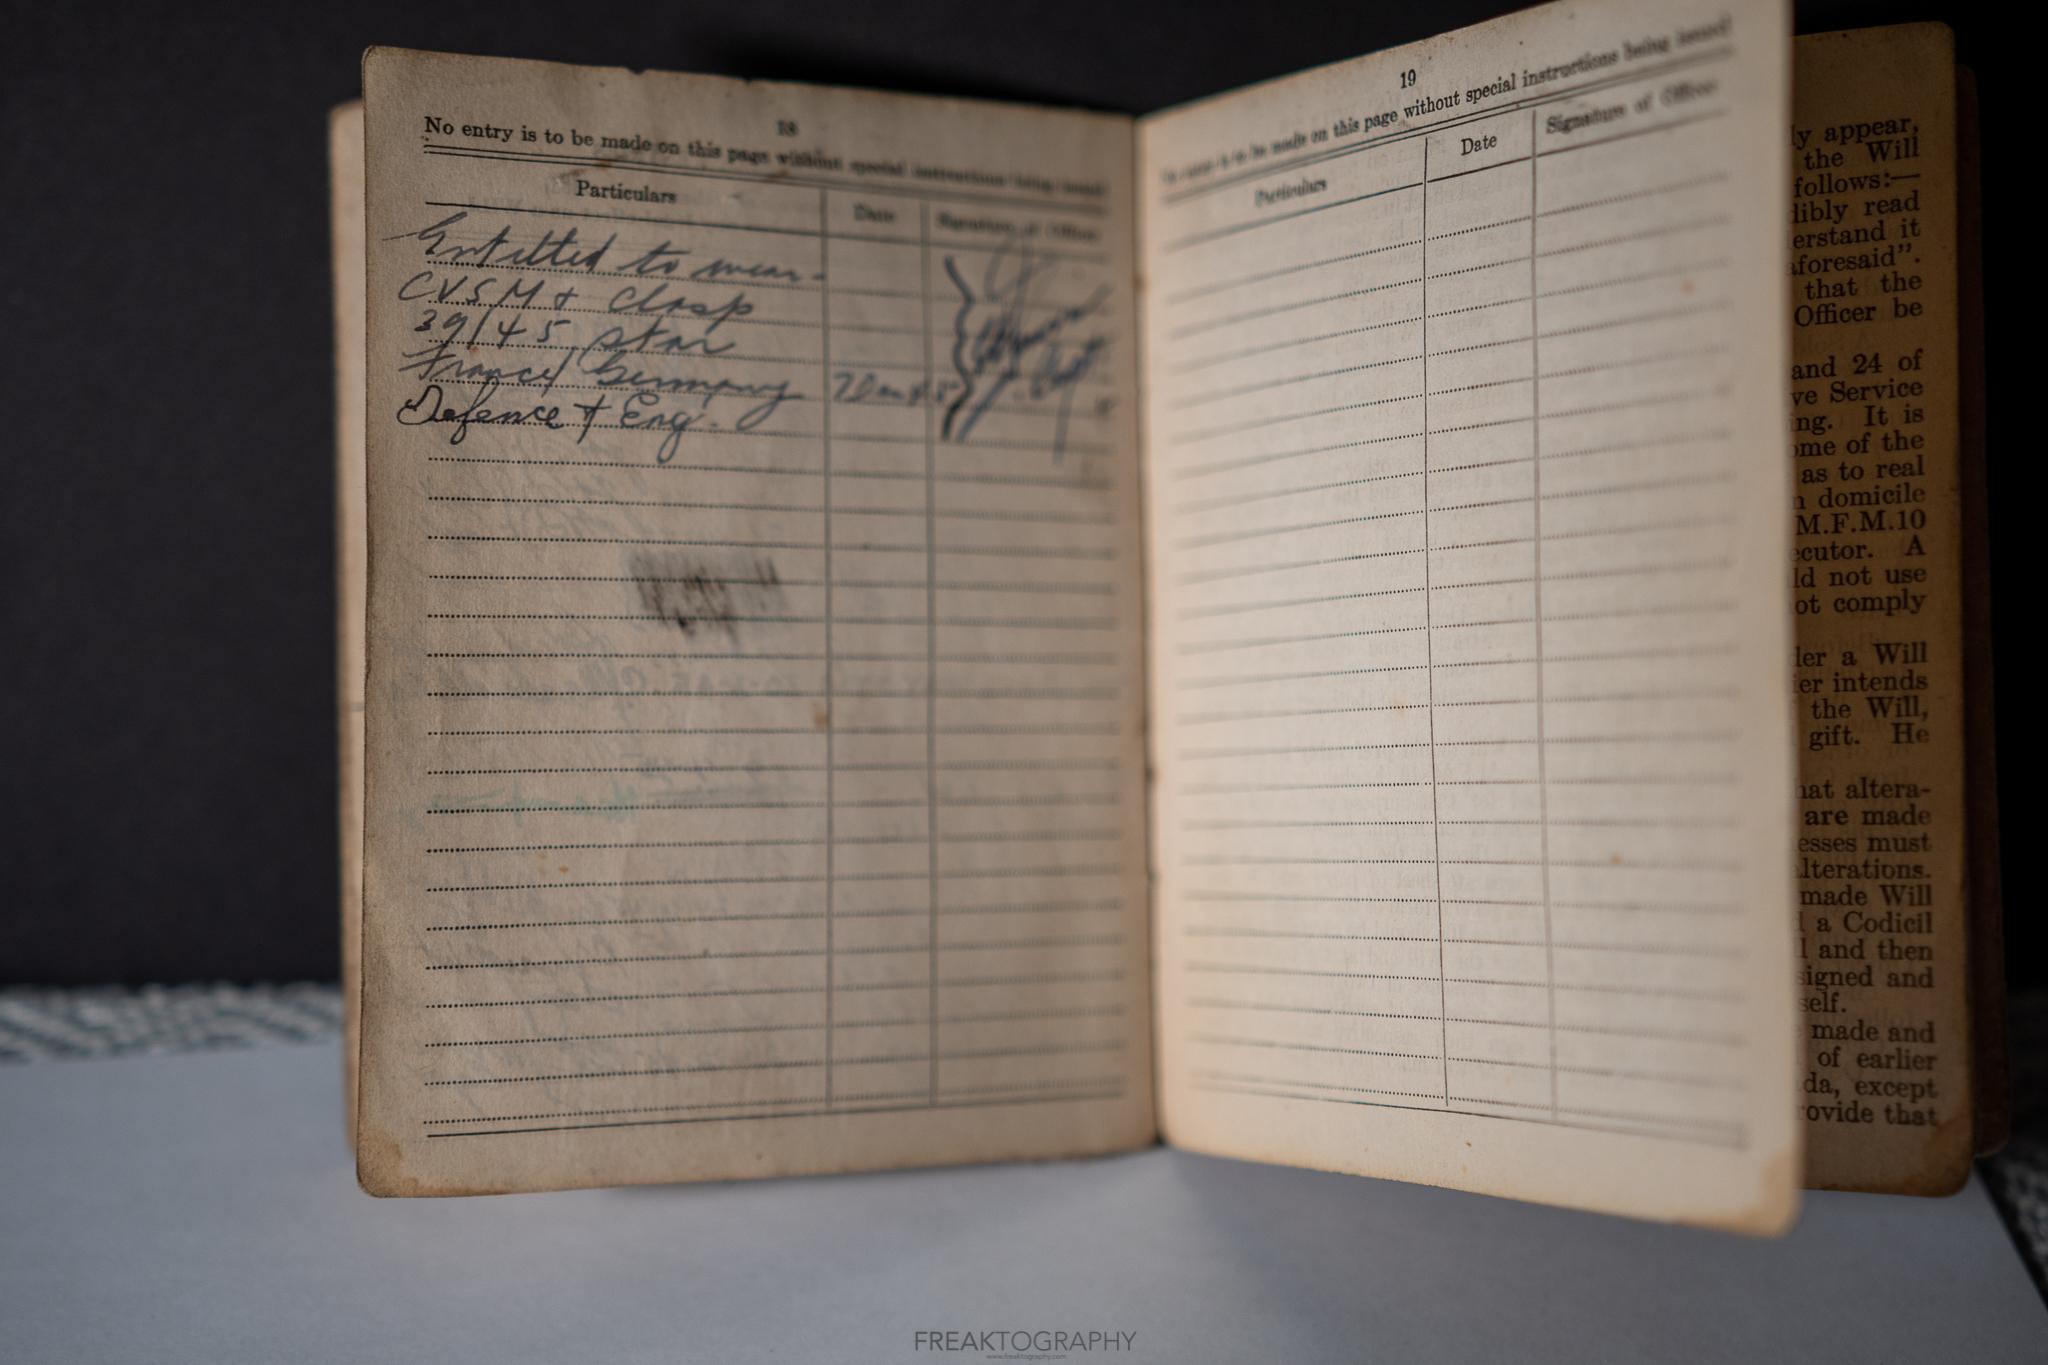 18
No entry is to be made on this page without special instructions being issued
Particulars
Date
Signature of Officer
Entitled to wear-
CVSM + Clasp
39/45 Star
France/Germany
Defence + Eng.
19
No entry is to be made on this page without special instructions being issued
Particulars
Date
Signature of Officer
ly appear,
the Will
follows:—
dibly read
erstand it
aforesaid".
that the
Officer be
and 24 of
ve Service
ing. It is
ome of the
as to real
n domicile
M.F.M.10
ecutor. A
ld not use
ot comply
der a Will
ier intends
the Will,
gift. He
hat altera-
are made
esses must
alterations.
made Will
d a Codicil
l and then
signed and
self.
made and
of earlier
da, except
rovide that
FREAKTOGRAPHY
www.freaktography.com